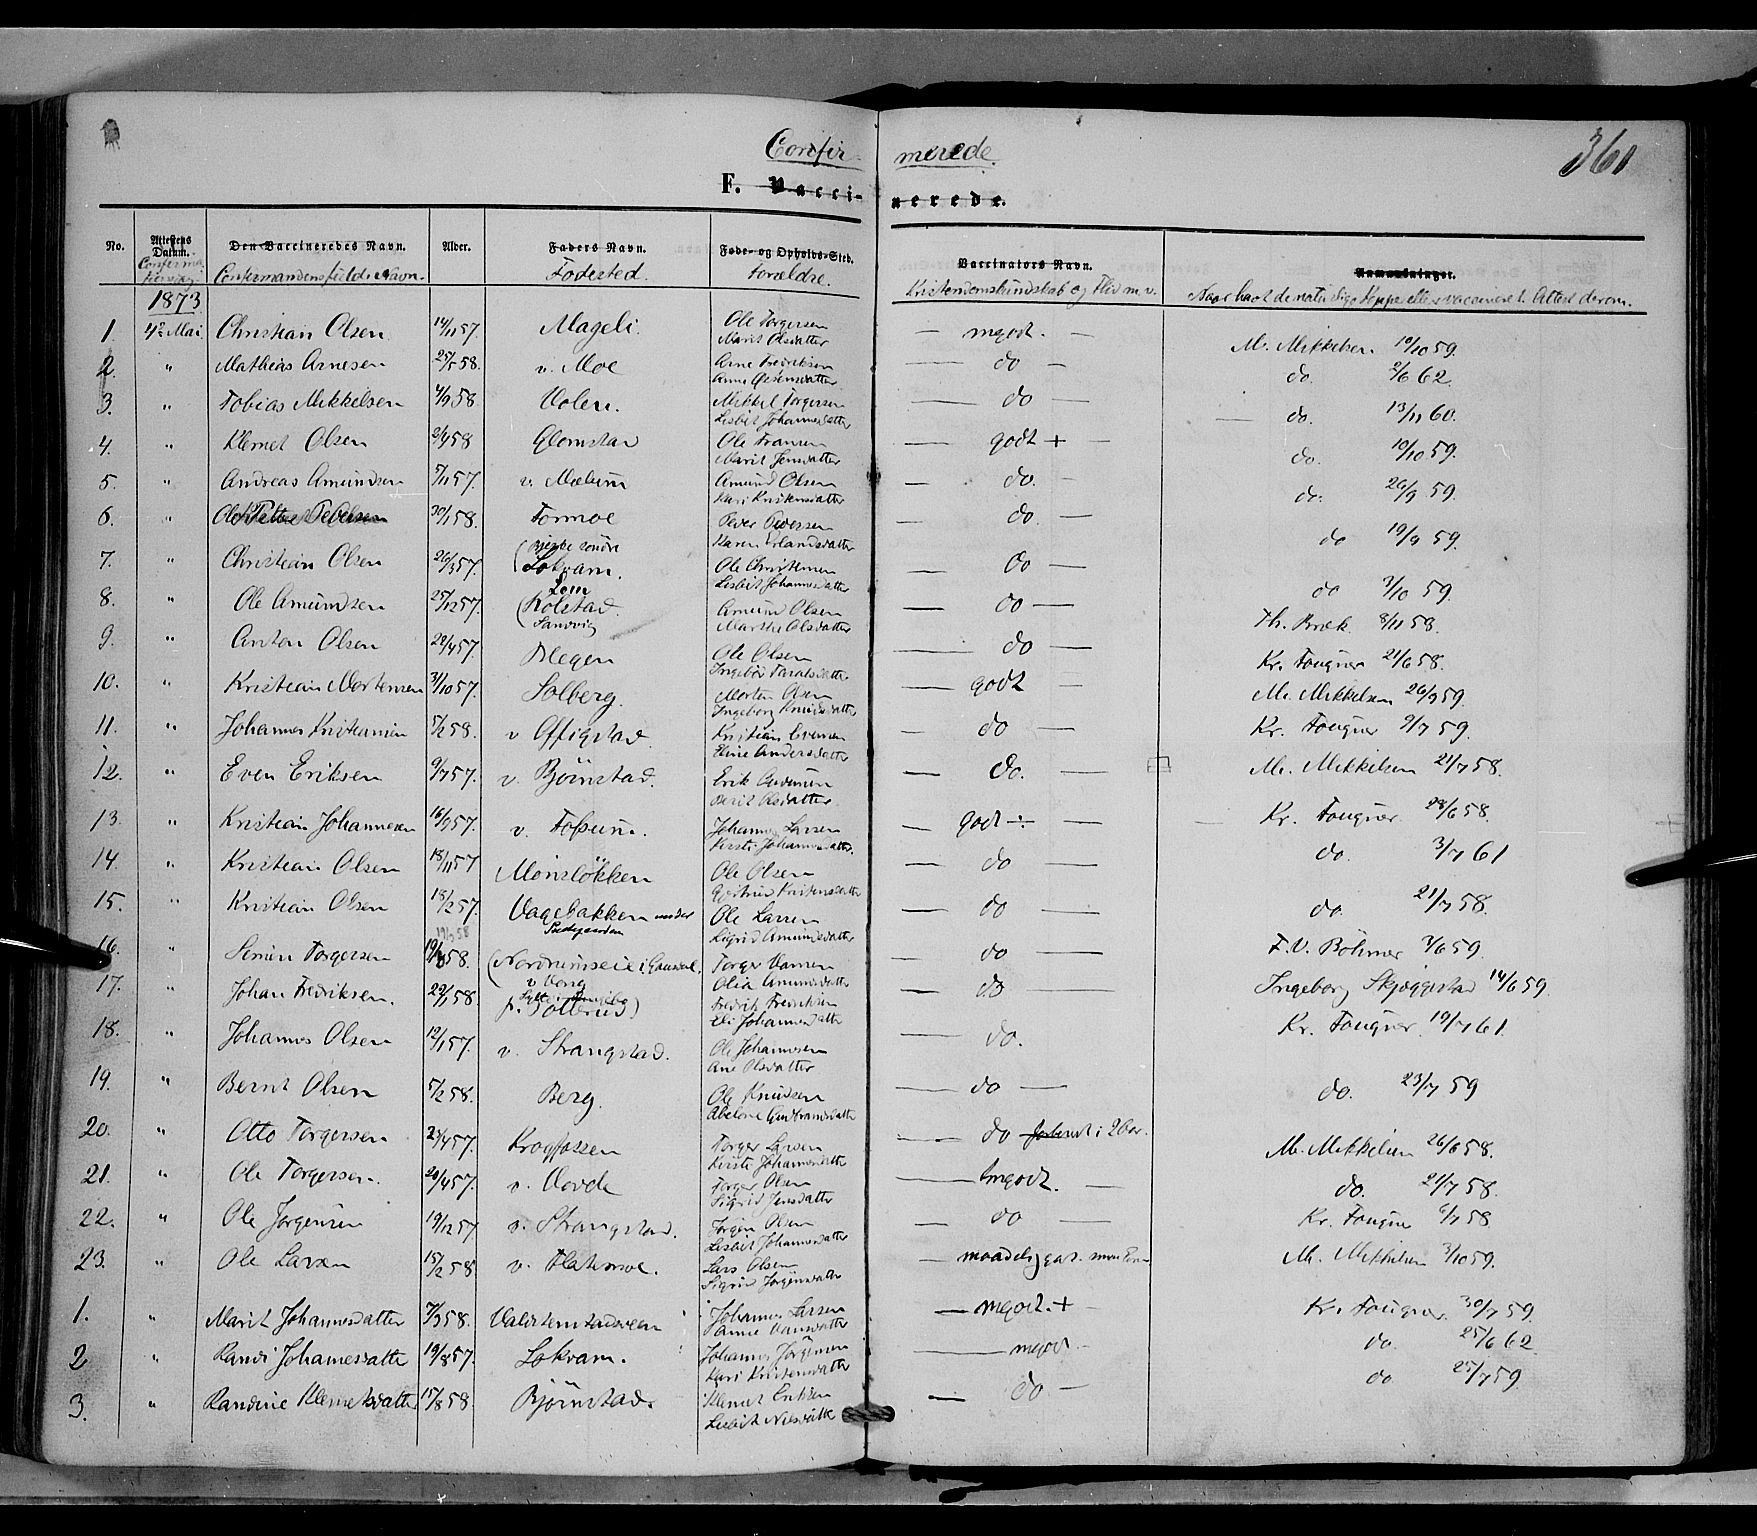 Confir- merede.
361
F. Vacci- nerede.
No. Attestens Datum. Den Vaccineredes Navn. Alder. Faders Navn. Føde- og Opholds-Sted. Vaccinators Navn. Anmærkninger.
Confermandens fulde Navn. Fødested. Forældre. Kristendomskundskab og Flid m. v.
1873
1. 4de Mai Christian Olsen 14/11 57. Mageli. Ole Torgersen mgodt. M. Mikkelsen 10/10 59.
Marit Olsdatter
2. " Mathias Arnesen 25/5 58. v. Moe Arne Fredriksen do do. 2/6 62.
Anne
3. " Tobias Mikkelsen 4/9 58 Volen. Mikkel Torgersen do do. 13/11 60.
Lisbit Johannesdatter
4. " Klemet Olsen 2/4 58 Glomstad Ole Fransen godt + do. 10/10 59.
Marit Jensdatter
5. " Andreas Amundsen 5/11 57. v. Melum Amund Olsen do. do. 26/9 59.
Kari Kristensdatter
6. " 30/1 58. Formoe Peder Pedersen do. do 19/9 59.
Karen Erlandsdatter
7. " Christian Olsen 26/3 57. søndre Ole Christensen do do 3/10 59.
Lokvam. Lisbit Johannesdatter
8. " Ole Amundsen 25/12 57. Lom Amund Olsen do Th. Bræk. 8/11 58.
Kolstad Marthe Olsdatter
Sandvig
9. " Anton Olsen 29/4 57. Megen Ole Olsen do Kr. Fougner 21/6 58.
10. " Kristian Mortensen 31/10 57. Solberg. Morten Olsen godt M. Mikkelsen 26/9 59.
Ingeborg Knudsdatter
11. " Johannes Kristiansen 5/2 58. v. Offigstad. Kristian Evensen do Kr. Fougner 9/7 59.
Stine Andersdatter
12. " Even Eriksen 9/7 57. v. Bjørnstad. Erik Andersen do. M. Mikkelsen 21/7 58.
Berit Olsdatter
13. " Kristian Johannesen 16/9 57. v. Fossum. Johannes Larsen godt ÷ Kr. Fougner. 28/6 58.
Kirsti Johannesdatter.
14. " Kristian Olsen 18/11 57 Monsløkken Ole Olsen do do. 3/7 61
Kristensdatter
15. " Kristian Olsen 18/2 57. Vagebakken under Ole Larsen do do. 21/7 58.
Prestegarden Sigrid Amundsdatter
16. " Simen Torgersen 19/3 58. Nordrumseie i Gausdal Torger Hansen do F. V. Böhmer 3/6 59.
Olia Amundsdatter
17. " Johan Fredriksen. 29/1 58. Fredrik Fredriksen do Ingeborg Skjæggestad 14/6 59.
Eli Johannesdatter
18. " Johannes Olsen 12/1 57. v. Strangstad. Ole Johannesen do. Kr. Fougner. 19/7 61.
Ane Olsdatter
19. " Bernt Olsen 5/2 58. Berg. Ole Knudsen do do. 23/7 59
Abelone Gudbrandsdatter
20. " Otto Torgersen 24/4 57. Krogfossen Torger Larsen do M. Mikkelsen 26/6 58.
Kirsti Johannesdatter
21. " Ole Torgersen. 20/4 57. v. Torger Olsen mgodt. do. 21/7 58.
Sigrid Jensdatter
22. " Ole Jørgensen 19/12 57 v. Strangstad. Jørgen Olsen do Kr. Fougner 6/7 58
Lisbit Johannesdatter
23. " Ole Larsen 15/2 58 v. Flatmoe. Lars Olsen maadelig M. Mikkelsen 3/10 59.
Sigrid Jørgensdatter
1. " Marit Johannesdatter 7/3 58. Johannes Larsen mgodt. + Kr. Fougner. 30/7 59.
2 " Randi Johanesdatte 19/8 57. Lokvam. Johannes Jørgensen mgodt. do. 25/6 62
Kari Kristensdatter
3. " Randine Klemetsdatter 15/8 58. Bjørnstad. Klemet Eriksen do do 25/7 59.
Lisbit Nilsdatte